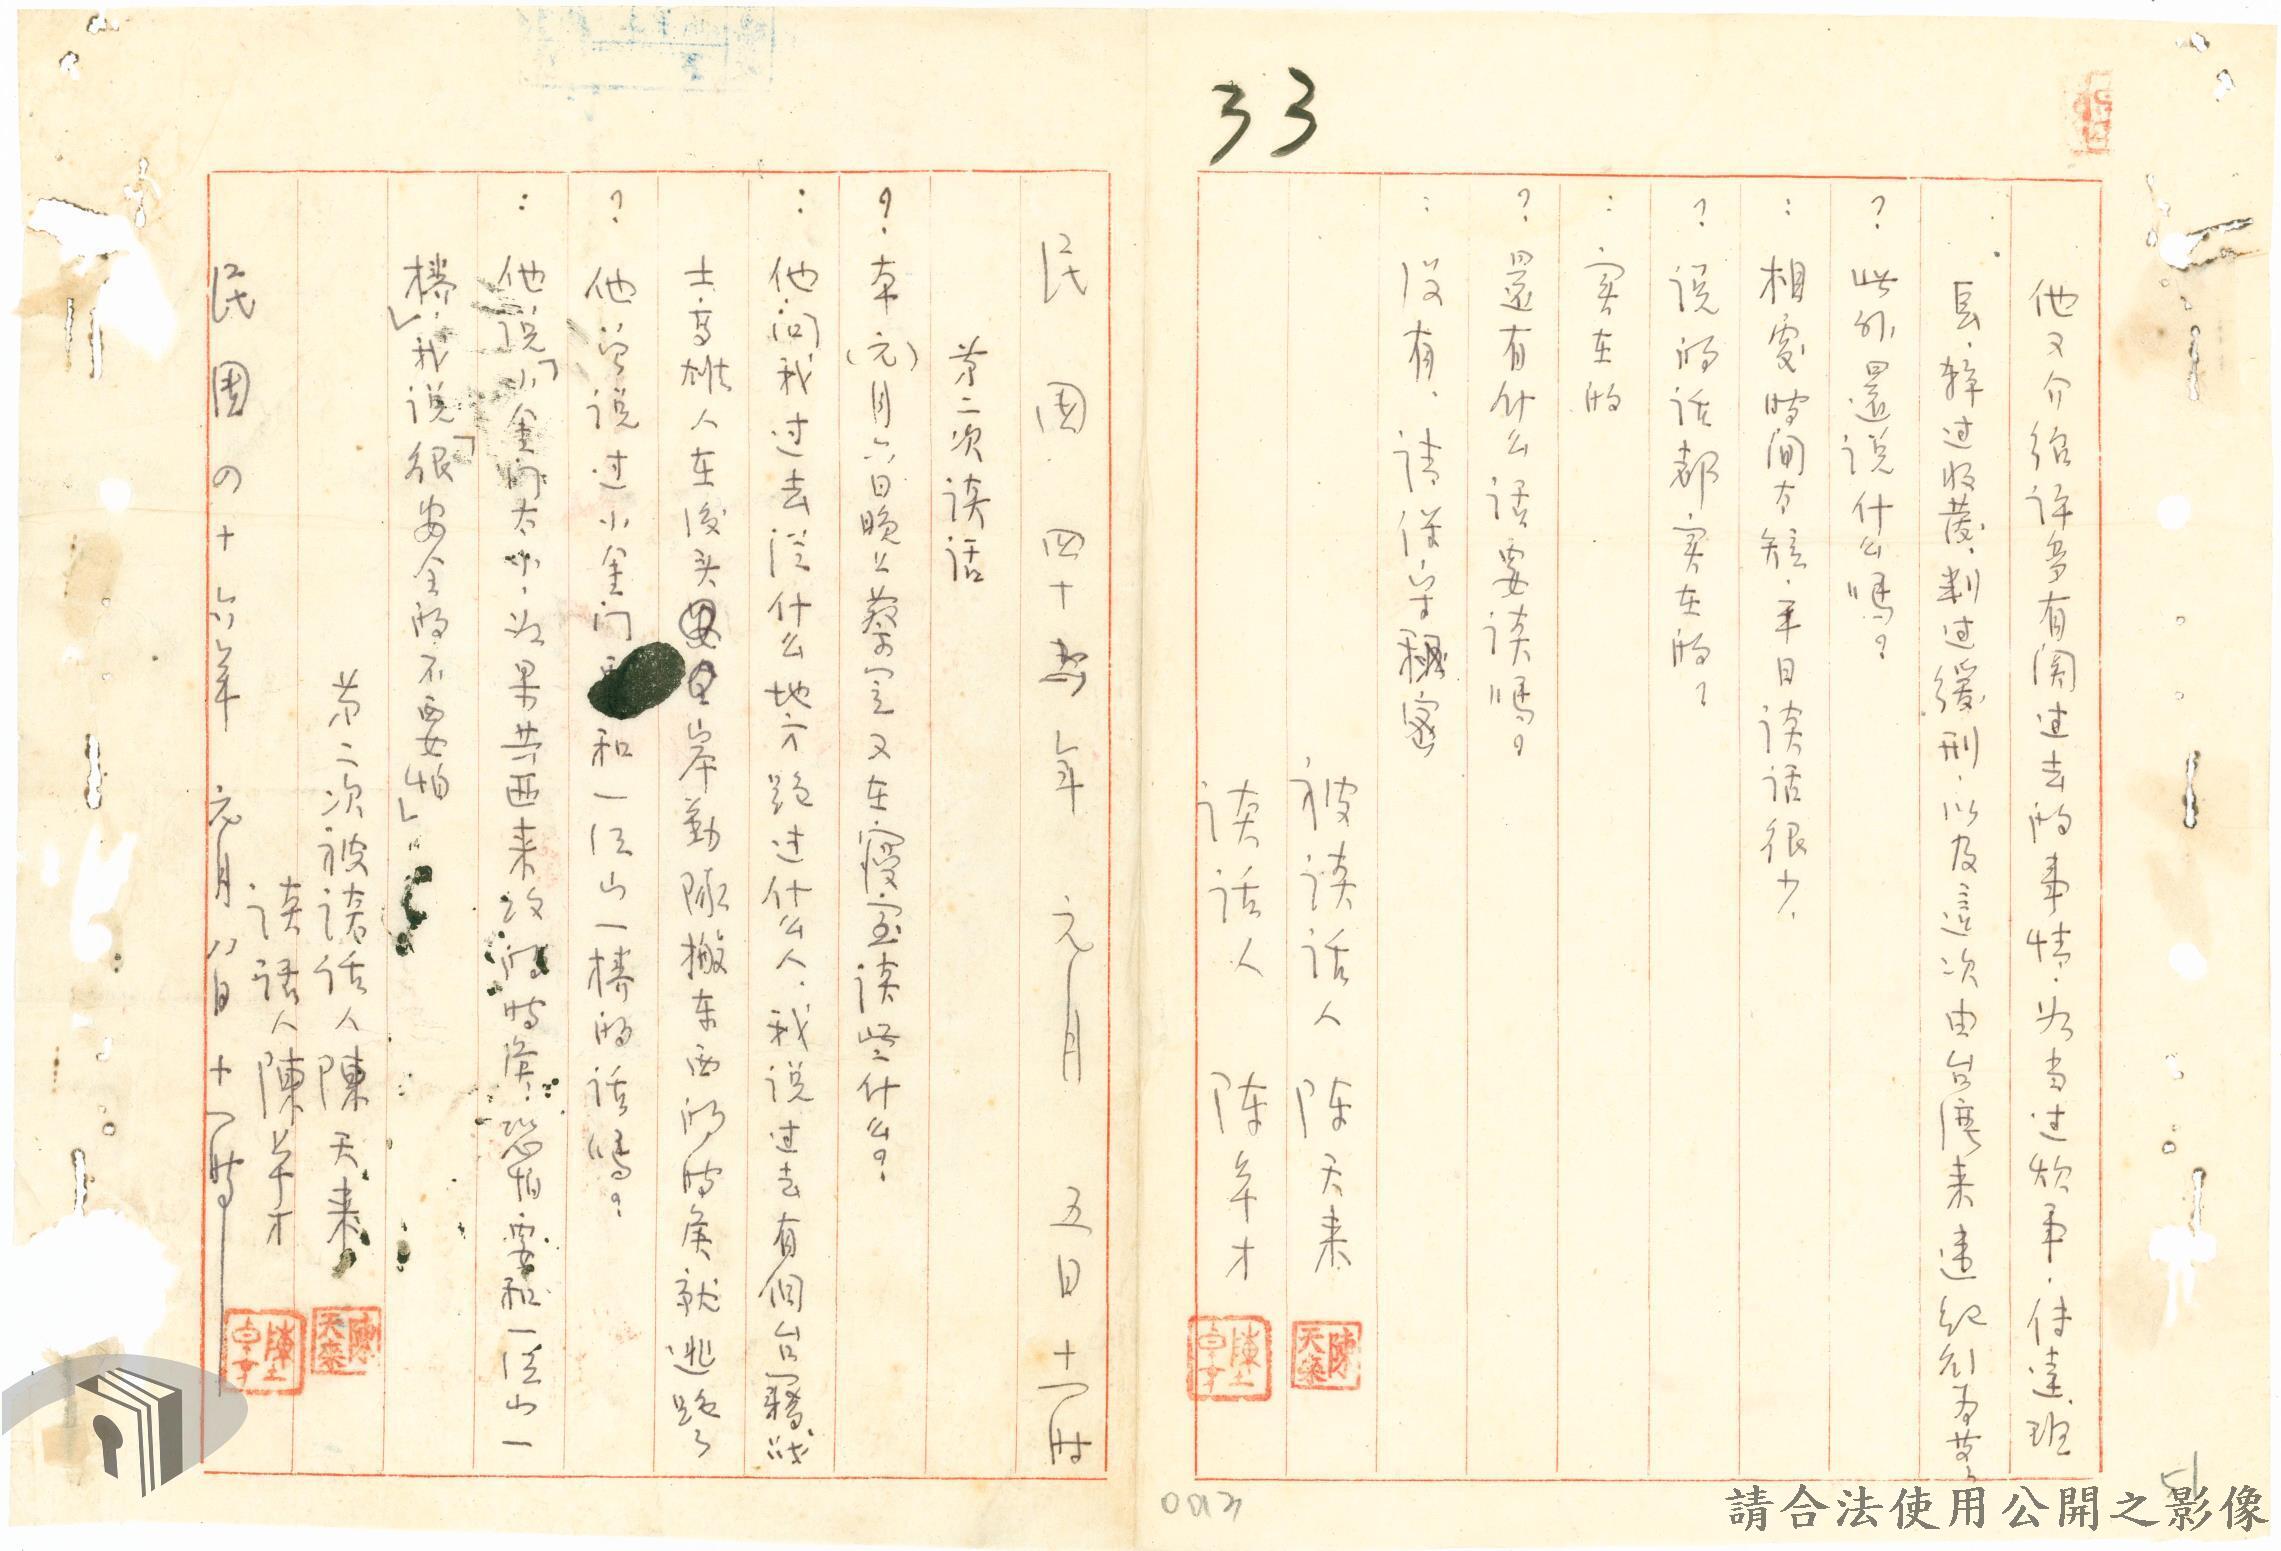 33
他又介紹許多有関过去的事情.为当过炊事.传達.班
長.幹过收發.判过缓刑.以及這次由台库来違纪判为
?此外還说什么嗎?
:相處時间太短.平日谈话很少.
?说的话都实在的?
:实在的
?還有什么话要谈嗎?
:没有.請保守秘密
被谈话人 陈天来
谈话人 陈卓才
陳天來
陳卓才
民国四十六年元月五日十一时
第二次谈话
?本(元)月六日晚上蔡定又在寝室谈些什么?
:他问我过去從什么地方跑过什么人.我说过去有個台籍战
士.高雄人在後头岸勤隊搬东西的時候就逃跑了
?他曾说过小金门和一江山一樣的话嗎?
:他说「小金门太小.如果共匪来攻的時候.恐怕要和一江山一
樣」我说「很安全的不要怕」
第二次被谈话人陳天来
谈话人陳卓才
民國四十六年元月八日十一時
陳天來
陳卓才
0013
51
請合法使用公開之影像